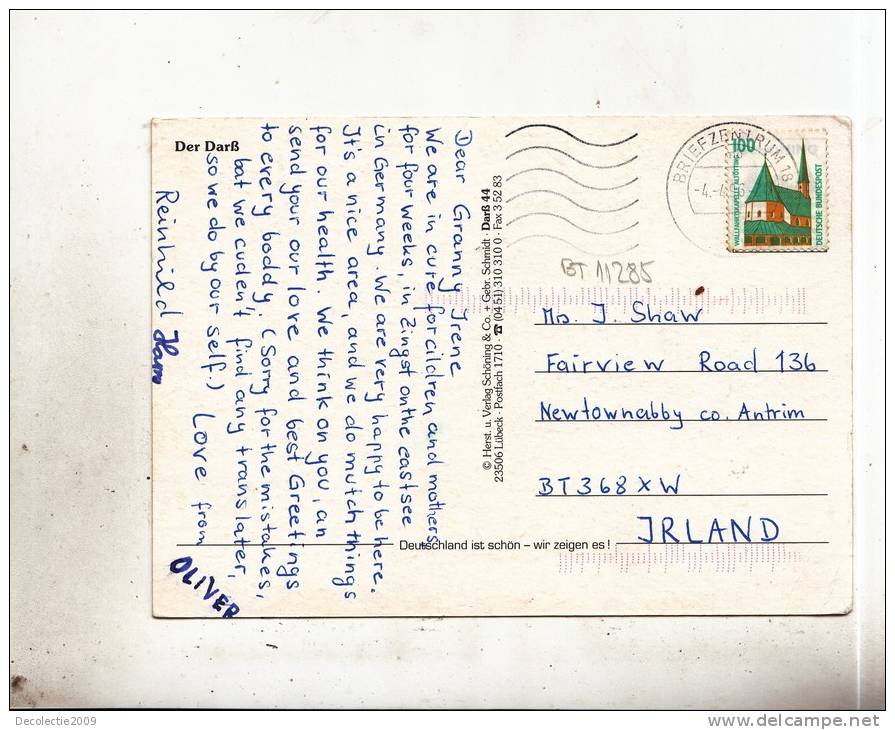 Der Darß
Dear Granny Irene
We are in cure for cildren and mothers
for four weeks, in Zingst on the eastsee
in Germany. We are very happy to be here.
It's a nice area, and we do mutch things
for our health. We think on you, an
send your our love and best Greetings
to every boddy. (Sorry for the mistakes,
but we cuden't find any translater,
so we do by our self.) Love from
Reinhild
OLIVER
© Herst. u. Verlag Schöning & Co. + Gebr. Schmidt · Darß 44
23506 Lübeck · Postfach 1710 · ☎ (04 51) 310 310 0 · Fax 3 52 83
BRIEFZENTRUM 18
100
WALLFAHRTSKAPELLE ALTÖTTING
DEUTSCHE BUNDESPOST
BT 11285
Mrs. J. Shaw
Fairview Road 136
Newtownabby co. Antrim
BT368XW
JRLAND
Deutschland ist schön – wir zeigen es !
Decolectie2009
delcampe.net